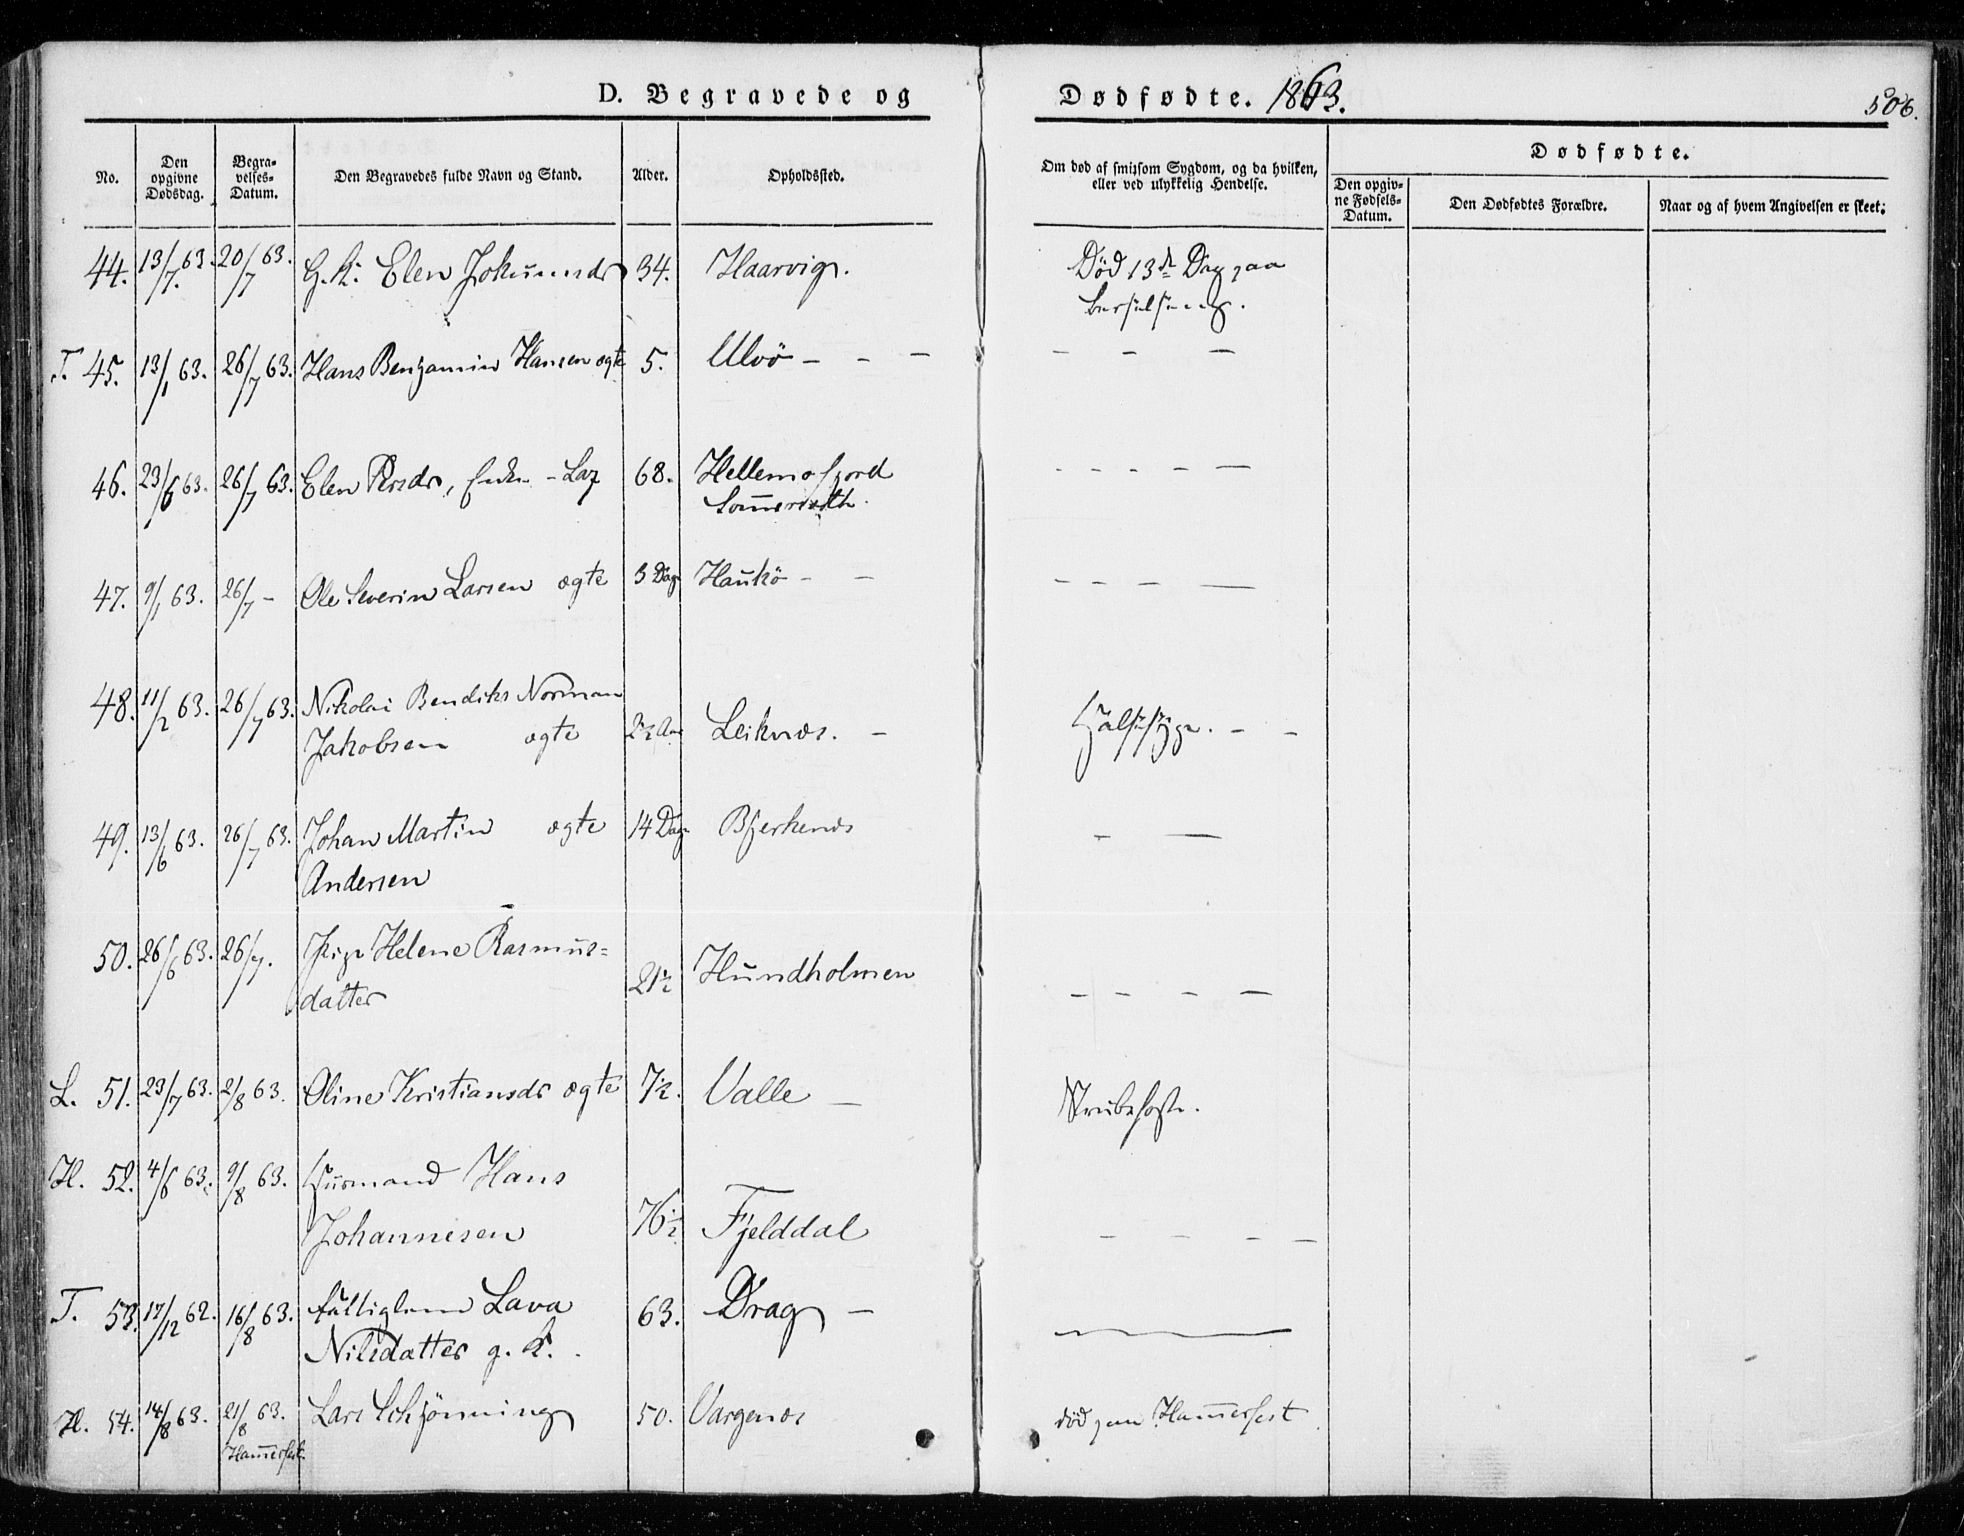 D. Begravede og Dødfødte. 1863. 506.
No. Den opgivne Dødsdag. Begravelses-Datum. Den Begravedes fulde Navn og Stand. Alder. Opholdssted. Om død af smitsom Sygdom, og da hvilken, eller ved ulykkelig Hendelse. Dødfødte. Den opgivne Fødsels-Datum. Den Dødfødtes Forældre. Naar og af hvem Angivelsen er skeet:
44. 13/7 63. 20/7 63. G. K. Elen Jokumsdr 34. Haarvig. Død 13de Dag paa
Barselseng.
T. 45. 13/1 63. 26/7 63. Hans Benjamin Hansen ægte 5. Ulvö - - - - - -
46. 23/6 63. 26/7 63. Elen Persdr, Enke - Lap 68. Hellemofjord - - - - -
Sommersæth.
47. 9/1 63. 26/7 - Ole Severin Larsen ægte 3 Dage Haukö - - - - - -
48. 11/2 63. 26/7 63. Nikolai Bendiks Norman
Jakobsen ægte 2½ Aar Leiknæs. - Halssyge. - -
49. 13/6 63. 26/7 63. Johan Martin ægte 14 Dage Bjerkenæs - -
Andersen
50. 26/6 63. 26/7. Pige Helene Rasmus-
datter 21½ Hundholmen - - - -
L. 51. 23/7 63. 2/8 63. Oline Kristiansdr ægte 7½. Valle - Strubehoste.
H. 52. 4/6 63. 9/8 63. Huusmand Hans
Johannesen 76½ Fjelddal - - - -
T. 53. 17/12 62. 16/8 63. Fattiglem Lava 63. Drag -
Nilsdatter g. K.
H. 54. 14/8 63. 21/8 63. Lars Schjönning 50. Vargenæs død paa Hammerfest
Hammerfest.